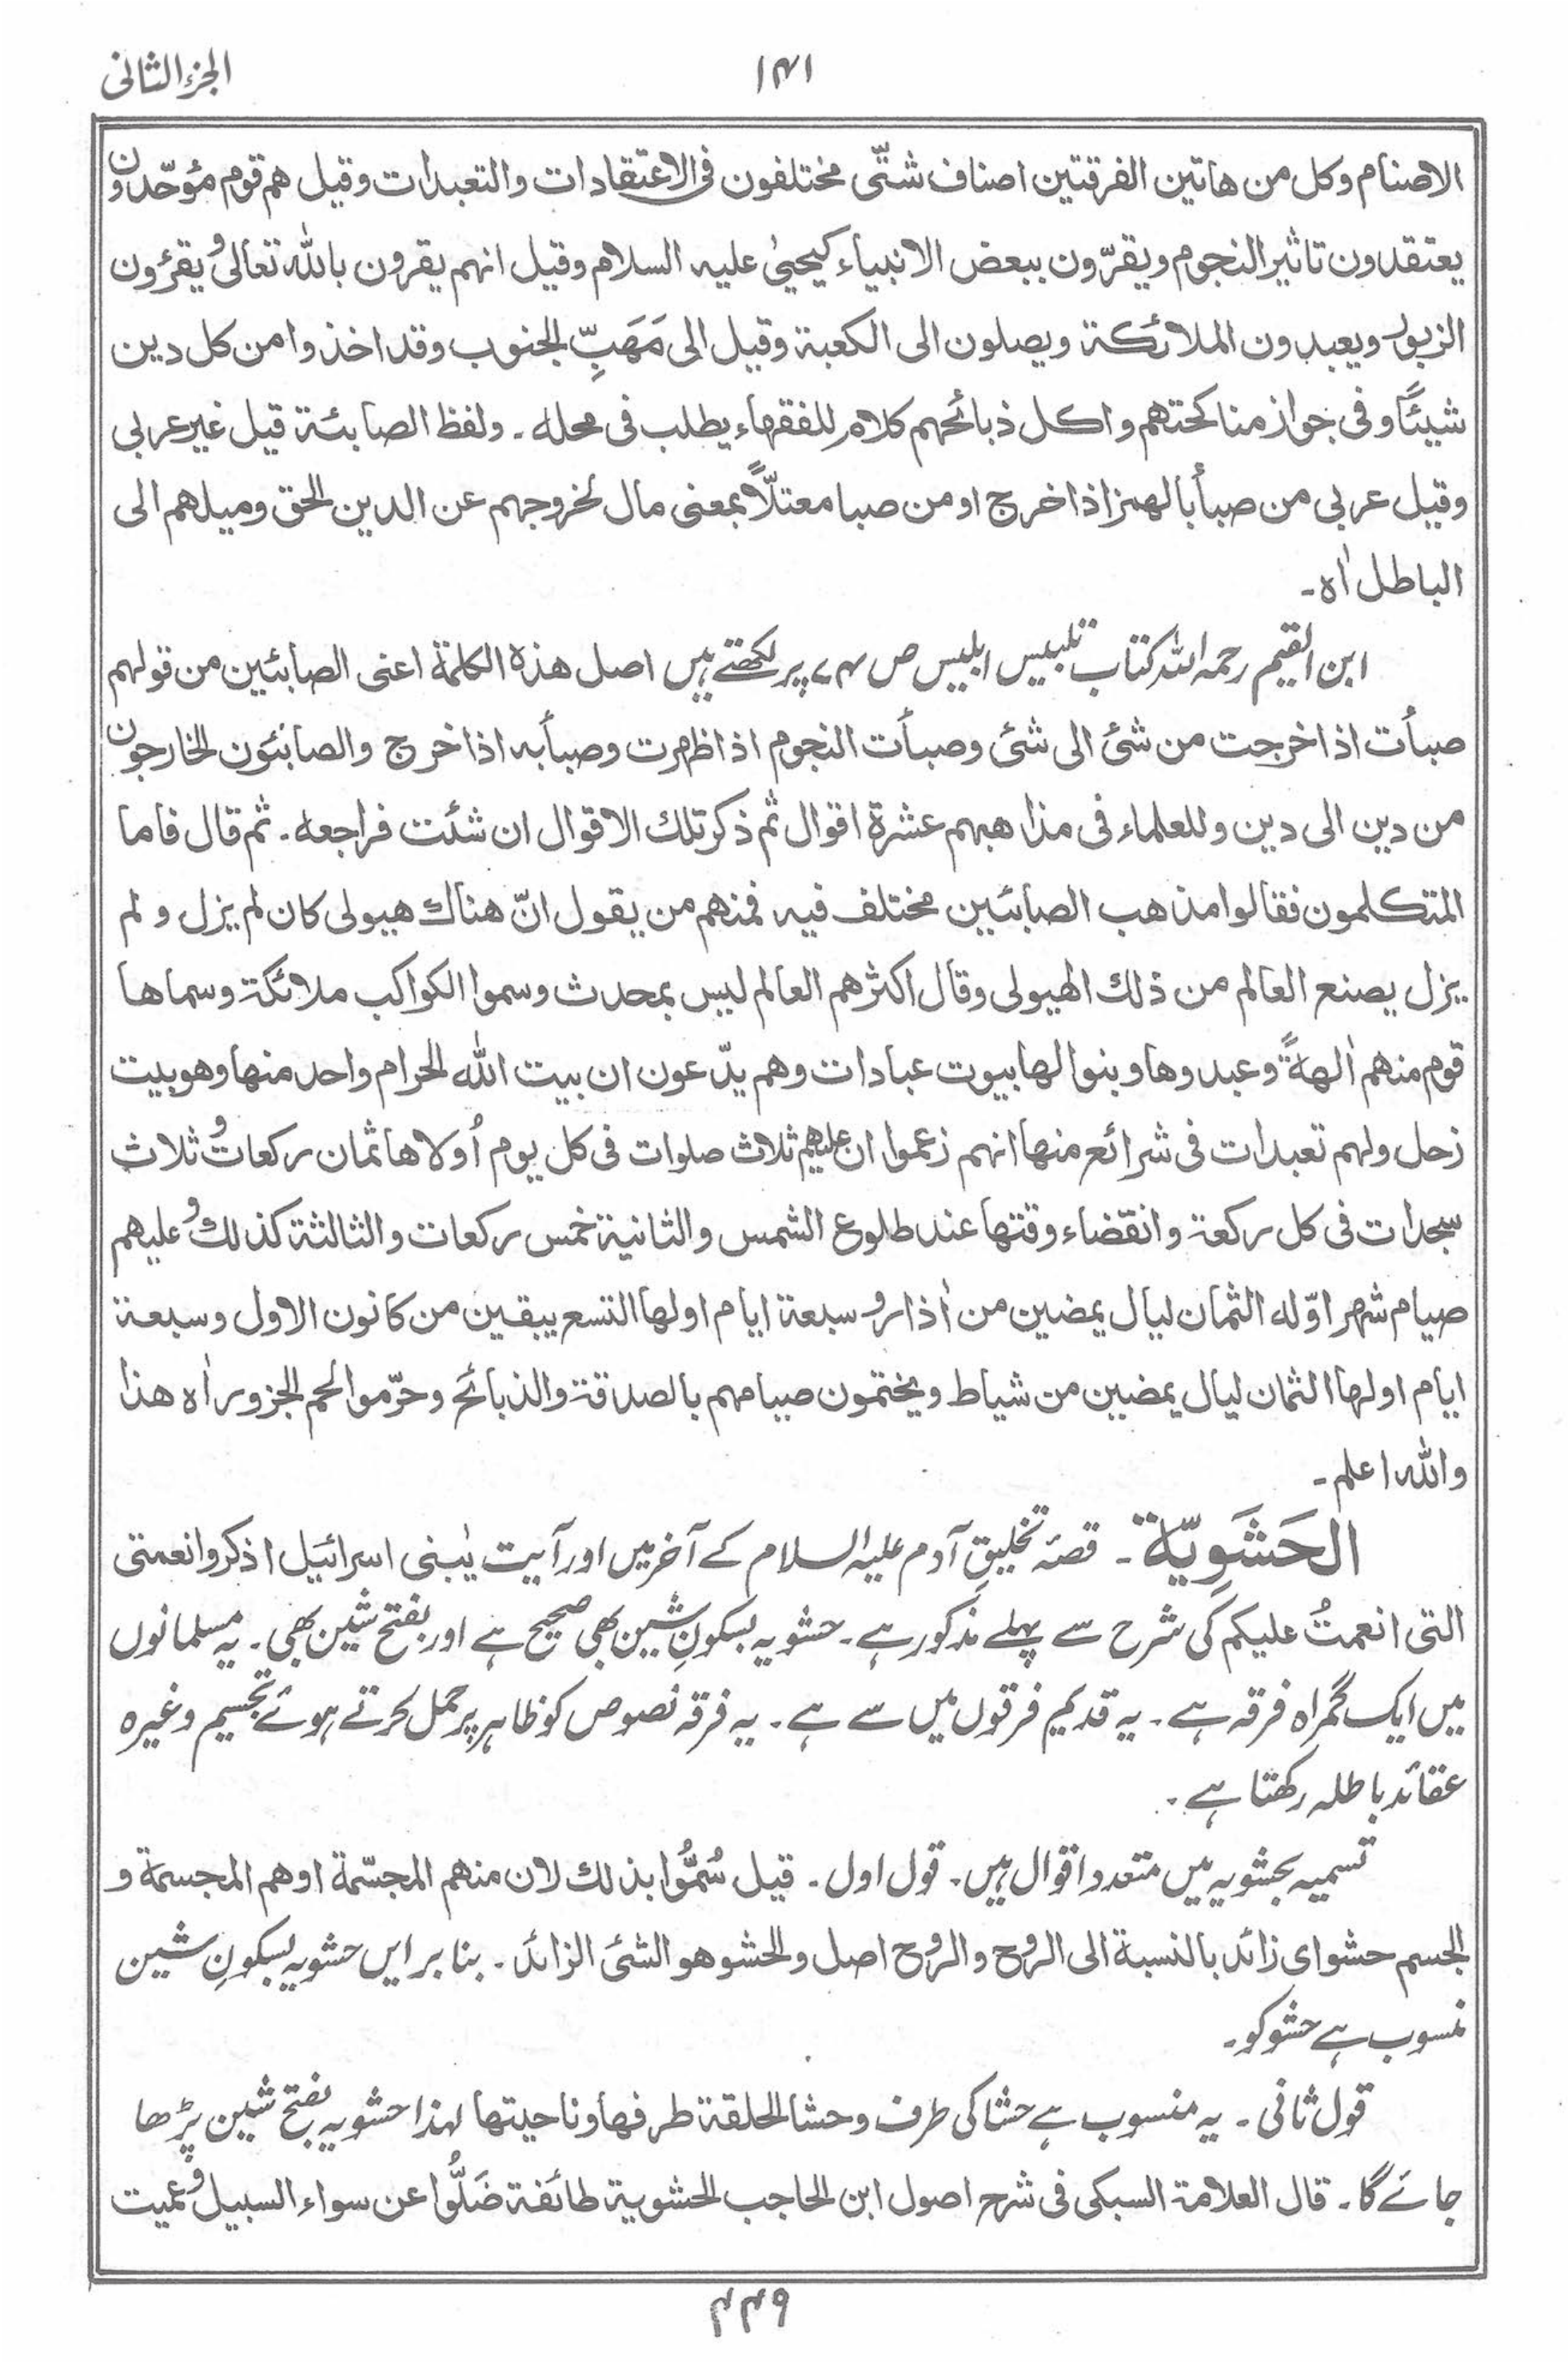 الجزء الثانی
۱۴۱
الاصنام وکل من هاتین الفرقتین اصناف شتّٰی مختلفون فی الاعتقادات والتعبدات وقیل هم قوم مؤحّدون
یعتقدون تاثیر النجوم ویقرّون ببعض الانبیاء کیحییٰ علیه السلام وقیل انهم یقرون بالله تعالٰی ویقرؤن
الزبور ویعبدون الملائکة ویصلون الی الکعبة وقیل الی مَهَبِّ الجنوب وقد اخذوا من کل دین
شیئًا وفی جواز مناکحتهم واکل ذبائحهم کلام للفقهاء یطلب فی محله ۔ ولفظ الصابئة قیل غیر عربی
وقیل عربی من صبأ بالهمز اذا خرج او من صبا معتلّاً بمعنی مال لخروجهم عن الدین الحق ومیلهم الی
الباطل اٰه ۔
ابن القیم رحمہ اللہ کتاب تلبیس ابلیس ص ۷۴ پر لکھتے ہیں اصل هذه الکلمة اعنی الصابئین من قولهم
صبأت اذا خرجت من شئ الی شئ وصبأت النجوم اذا ظهرت وصبأ به اذا خرج والصابئون الخارجون
من دین الی دین وللعلماء فی مذاهبهم عشرة اقوال ثم ذکر تلك الاقوال ان شئت فراجعه ۔ ثم قال فاما
المتکلمون فقالوا مذهب الصابئین مختلف فیه فمنهم من یقول انّ هناك هیولی کان لم یزل و لم
یزل یصنع العالم من ذلك الهیولی وقال اکثرهم العالم لیس بمحدث وسموا الکواکب ملائکة وسماها
قوم منهم اٰلهةً وعبدوها وبنوا لها بیوت عبادات وهم یدّعون ان بیت الله الحرام واحد منها وهو بیت
زحل ولهم تعبدات فی شرائع منها انهم زعموا ان علیهم ثلاث صلوات فی کل یوم اُولاها ثمان رکعات و ثلاث
سجدات فی کل رکعة وانقضاء وقتها عند طلوع الشمس والثانیة خمس رکعات والثالثة کذلك و علیهم
صیام شهر اوّله الثمان لیال یمضین من اٰذار و سبعة ایام اولها التسع یبقین من کانون الاول وسبعة
ایام اولها الثمان لیال یمضین من شیاط ویختمون صیامهم بالصدقة والذبائح وحرّموا لحم الجزور اٰه هذا
والله اعلم ۔
الحَشَوِیّة ۔ قصۂ تخلیقِ آدم علیہ السلام کے آخر میں اور آیت یٰبنی اسرائیل اذکروا نعمتی
التی انعمتُ علیکم کی شرح سے پہلے مذکور ہے ۔ حشویہ بسکونِ شین بھی صحیح ہے اور بفتح شین بھی ۔ یہ مسلمانوں
میں ایک گمراہ فرقہ ہے ۔ یہ قدیم فرقوں میں سے ہے ۔ یہ فرقہ نصوص کو ظاہر پر حمل کرتے ہوئے تجسیم وغیرہ
عقائد باطلہ رکھتا ہے ۔
تسمیہ بحشویہ میں متعدد اقوال ہیں ۔ قول اول ۔ قیل سُمُّوا بذلك لان منهم المجسّمة او هم المجسمة و
الجسم حشو ای زائد بالنسبة الی الروح والروح اصل والحشو هو الشئ الزائد ۔ بنا بر ایں حشویہ بسکونِ شین
منسوب ہے حشو کو ۔
قول ثانی ۔ یہ منسوب ہے حشا کی طرف وحشا الحلقة طرفها وناحیتها لہذا حشویہ بفتح شین پڑھا
جائے گا ۔ قال العلامة السبکی فی شرح اصول ابن الحاجب الحشویة طائفة ضَلُّوا عن سواء السبیل و عمیت
۴۴۹